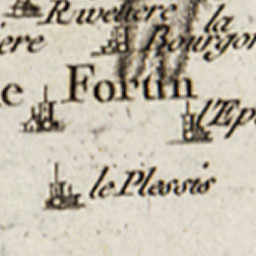 Rivetiere la
ere Bourgon
e Fortin
l'Ep
le Plessis